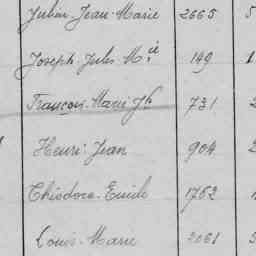 Julien Jean Marie 2665 5
Joseph Jules M.ie 149 1
François Marie Jh 731 2
Henri Jean 904 2
Théodore Emile 1762 1
Louis Marie 2061 3